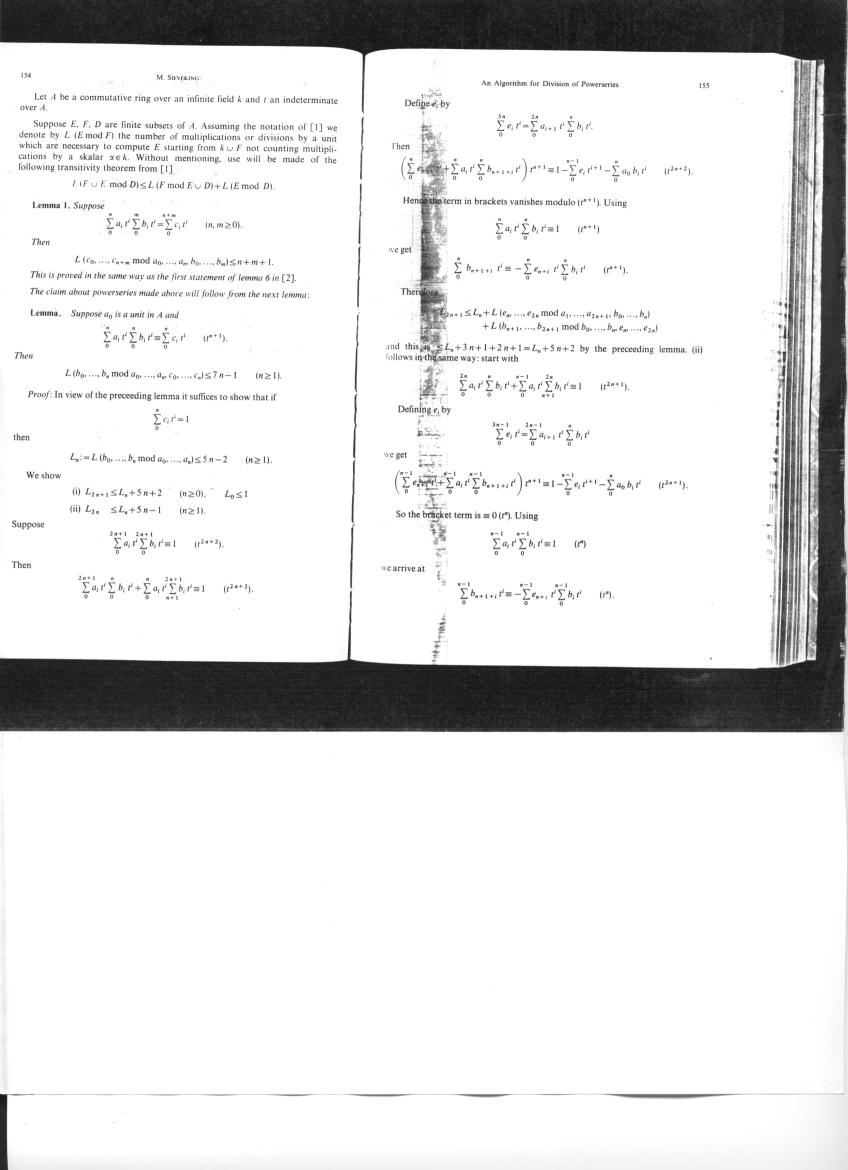 154
M. SIEVEKING:
Let A be a commutative ring over an infinite field k and t an indeterminate
over A.
Suppose E, F, D are finite subsets of A. Assuming the notation of [1] we
denote by L (E mod F) the number of multiplications or divisions by a unit
which are necessary to compute E starting from k ∪ F not counting multipli-
cations by a skalar α ∈ k. Without mentioning, use will be made of the
following transitivity theorem from [1]
L (F ∪ E mod D) ≤ L (F mod E ∪ D) + L (E mod D).
Lemma 1. Suppose
∑_0^n a_i t^i ∑_0^m b_i t^i = ∑_0^{n+m} c_i t^i (n, m ≥ 0).
Then
L (c_0, ..., c_{n+m} mod a_0, ..., a_n, b_0, ..., b_m) ≤ n+m+1.
This is proved in the same way as the first statement of lemma 6 in [2].
The claim about powerseries made above will follow from the next lemma:
Lemma. Suppose a_0 is a unit in A and
∑_0^n a_i t^i ∑_0^n b_i t^i ≡ ∑_0^n c_i t^i (t^{n+1}).
Then
L (b_0, ..., b_n mod a_0, ..., a_n, c_0, ..., c_n) ≤ 7 n − 1 (n ≥ 1).
Proof: In view of the preceeding lemma it suffices to show that if
∑_0^n c_i t^i = 1
then
L_n := L (b_0, ..., b_n mod a_0, ..., a_n) ≤ 5 n − 2 (n ≥ 1).
We show
(i) L_{2n+1} ≤ L_n + 5 n + 2 (n ≥ 0), L_0 ≤ 1
(ii) L_{2n} ≤ L_n + 5 n − 1 (n ≥ 1).
Suppose
∑_0^{2n+1} a_i t^i ∑_0^{2n+1} b_i t^i ≡ 1 (t^{2n+2}).
Then
∑_0^{2n+1} a_i t^i ∑_0^n b_i t^i + ∑_0^n a_i t^i ∑_{n+1}^{2n+1} b_i t^i ≡ 1 (t^{2n+2}).
An Algorithm for Division of Powerseries
155
Define e_i by
∑_0^{3n} e_i t^i = ∑_0^{2n} a_{i+1} t^i ∑_0^n b_i t^i.
Then
(∑_0^n t^i + ∑_0^n a_i t^i ∑_0^n b_{n+1+i} t^i) t^{n+1} ≡ 1 − ∑_0^{n−1} e_i t^{i+1} − ∑_0^n a_0 b_i t^i (t^{2n+2}).
Hence the term in brackets vanishes modulo (t^{n+1}). Using
∑_0^n a_i t^i ∑_0^n b_i t^i ≡ 1 (t^{n+1})
we get
∑_0^n b_{n+1+i} t^i ≡ − ∑_0^n e_{n+i} t^i ∑_0^n b_i t^i (t^{n+1}).
Therefore
L_{2n+1} ≤ L_n + L (e_n, ..., e_{2n} mod a_1, ..., a_{2n+1}, b_0, ..., b_n)
+ L (b_{n+1}, ..., b_{2n+1} mod b_0, ..., b_n, e_n, ..., e_{2n})
and this is ≤ L_n + 3 n + 1 + 2 n + 1 = L_n + 5 n + 2 by the preceeding lemma. (ii)
follows in the same way: start with
∑_0^{2n} a_i t^i ∑_0^n b_i t^i + ∑_0^{n−1} a_i t^i ∑_{n+1}^{2n} b_i t^i ≡ 1 (t^{2n+1}).
Defining e_i by
∑_0^{3n−1} e_i t^i = ∑_0^{2n−1} a_{i+1} t^i ∑_0^n b_i t^i
we get
(∑_0^{n−1} e_{n+i} t^i + ∑_0^{n−1} a_i t^i ∑_0^{n−1} b_{n+1+i} t^i) t^{n+1} ≡ 1 − ∑_0^{n−1} e_i t^{i+1} − ∑_0^n a_0 b_i t^i (t^{2n+1}).
So the bracket term is ≡ 0 (t^n). Using
∑_0^{n−1} a_i t^i ∑_0^{n−1} b_i t^i ≡ 1 (t^n)
we arrive at
∑_0^{n−1} b_{n+1+i} t^i ≡ − ∑_0^{n−1} e_{n+i} t^i ∑_0^{n−1} b_i t^i (t^n).